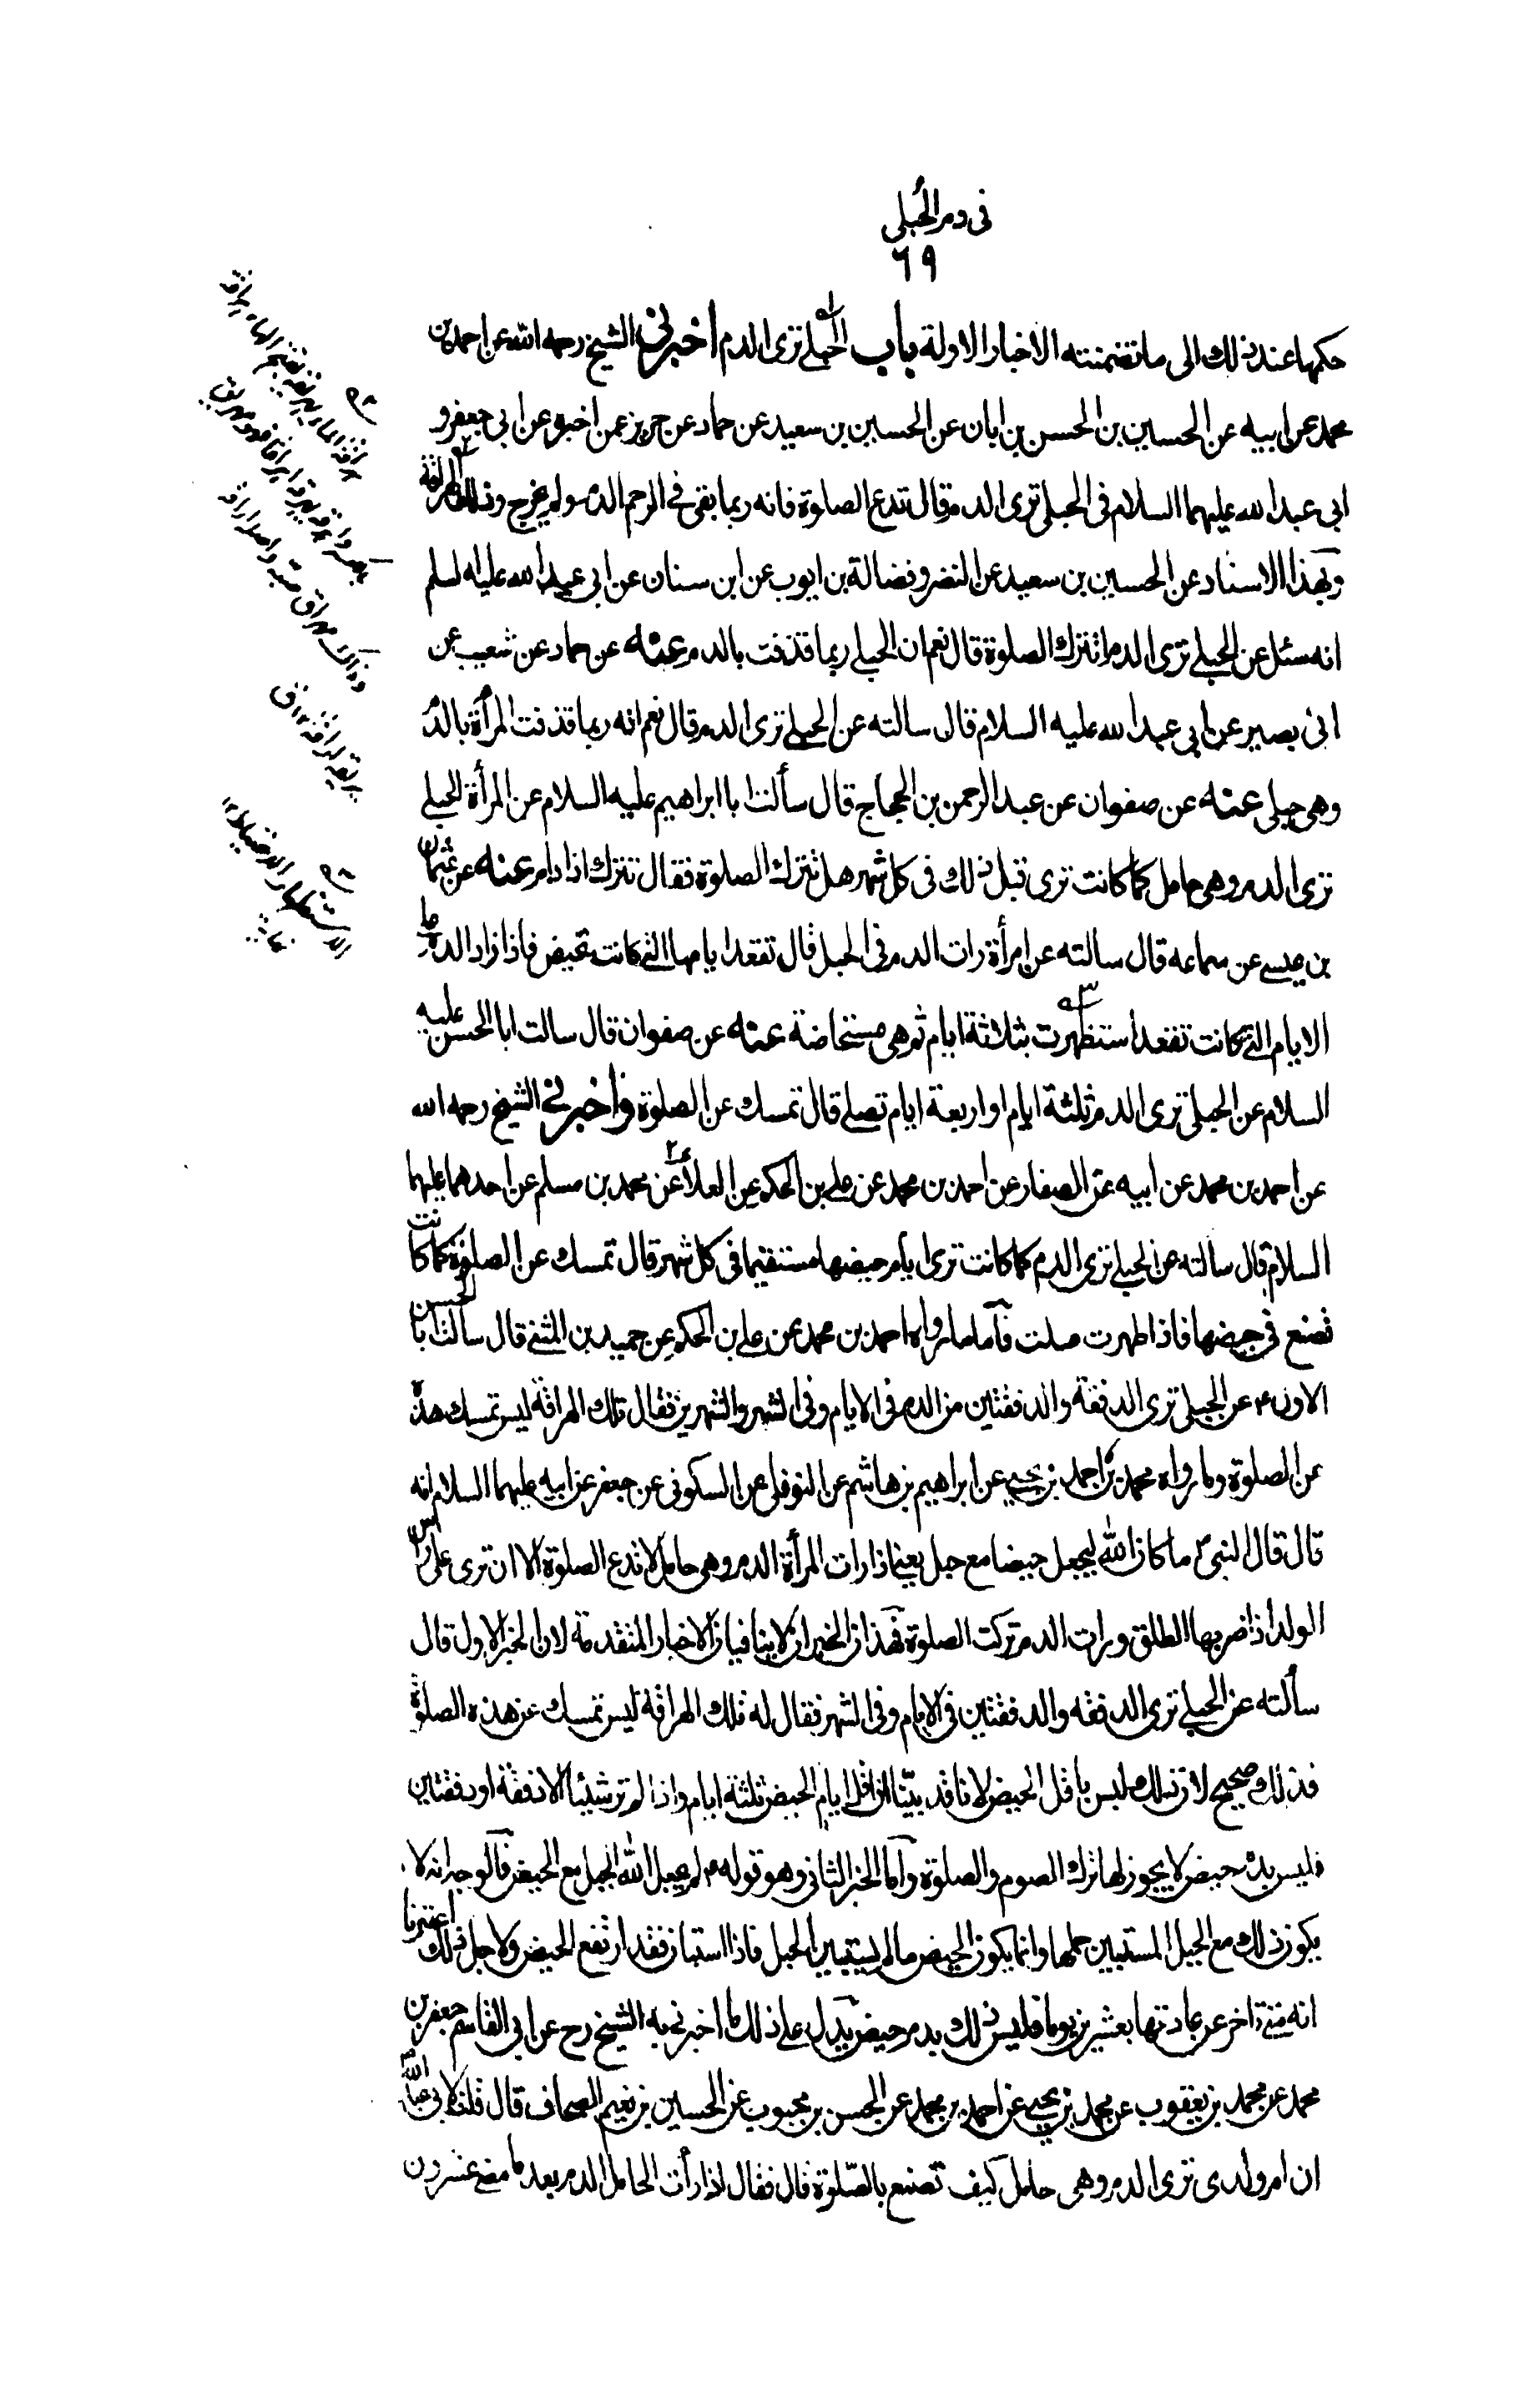 فى دم الحبلى
٦٩
حكمها عند ذلك الى ما تضمنته الاخبار الاولة باب الحبلى ترى الدم اخبرنى الشيخ رحمه الله عن احمد بن
محمد عن ابيه عن الحسين بن الحسن بن ابان عن الحسين بن سعيد عن حماد عن حريز عمن اخبره عن ابى جعفر و
ابى عبد الله عليهما السلام فى الحبلى ترى الدم قال تدع الصلوة فانه ربما بقى فى الرحم الدم ولم يخرج وتلك الهراقة
وبهذا الاسناد عن الحسين بن سعيد عن النضر وفضالة بن ايوب عن ابن سنان عن ابى عبد الله عليه السلم
انه سئل عن الحبلى ترى الدم اتترك الصلوة قال نعم ان الحبلى ربما قذفت بالدم عنه عن حماد عن شعيب عن
ابى بصير عن ابى عبد الله عليه السلام قال سالته عن الحبلى ترى الدم قال نعم انه ربما قذفت المرأة بالدم
وهى حبلى عنه عن صفوان عن عبد الرحمن بن الحجاج قال سألت ابا ابراهيم عليه السلام عن المرأة الحبلى
ترى الدم وهى حامل كما كانت ترى قبل ذلك فى كل شهر هل تترك الصلوة فقال تترك اذا دام عنه عن عثمان
بن عيسى عن سماعه قال سالته عن امرأة رات الدم فى الحبل قال تقعد ايامها التى كانت تحيض فاذا زاد الدم على
الايام التى كانت تقعد استظهرت بثلاثة ايام ثم هى مستحاضة عنه عن صفوان قال سالت ابا الحسن عليه
السلام عن الحبلى ترى الدم ثلثة ايام او اربعة ايام تصلى قال تمسك عن الصلوة واخبرنى الشيخ رحمه الله
عن احمد بن محمد عن ابيه عن الصفار عن احمد بن محمد عن على بن الحكم عن العلأ عن محمد بن مسلم عن احدهما عليهما
السلام قال سالته عن الحبلى ترى الدم كما كانت ترى ايام حيضها مستقيما فى كل شهر قال تمسك عن الصلوة كما كانت
تصنع فى حيضها فاذا طهرت صلت فاما ما رواه احمد بن محمد عن على بن الحكم عن حميد بن المثنى قال سألت ابا الحسن
الاول ع عن الحبلى ترى الدفقة والدفقتين من الدم فى الايام وفى الشهر والشهرين فقال تلك الهراقة ليس تمسك هذه
عن الصلوة وما رواه محمد بن احمد بن يحيى عن ابراهيم بن هاشم عن النوفلى عن السكونى عن جعفر عن ابيه عليهما السلام انه
قال قال النبى ص ما كان الله ليجعل حيضا مع حبل يعنى اذا رات المرأة الدم وهى حامل لا تدع الصلوة الا ان ترى على راس
الولد اذا ضربها الطلق ورات الدم تركت الصلوة فهذان الخبران لا ينافيان الاخبار المتقدمة لان الخبر الاول قال
سألته عن الحبلى ترى الدفقه والدفقتين فى الايام وفى الشهر فقال له تلك الهراقة ليس تمسك عن هذه الصلوة
فذلك صحيح لان ذلك ليس باقل الحيض لانا قد بيّنا ان اقل ايام الحيض ثلثة ايام واذا لم تر شيئا الا دفقة او دفقتين
فليس بدم حيض لا يجوز لها ترك الصوم والصلوة واما الخبر الثانى وهو قوله ع لم يجعل الله الحبل مع الحيض فالوجه انه لا
يكون ذلك مع الحبل المستبين حملها وانما يكون الحيض ما لم يستبين الحبل فاذا استبان فقد ارتفع الحيض ولاجل ذلك اعتبرنا
انه متى تاخر عن عادتها بعشرين يوما فليس ذلك بدم حيض يدل على ذلك ما اخبرنى به الشيخ رح عن ابى القاسم جعفر بن
محمد عن محمد بن يعقوب عن محمد بن يحيى عن احمد بن محمد عن الحسن بن محبوب عن الحسين بن نعيم الصحاف قال قلت لابى عبد الله
ان ام ولدى ترى الدم وهى حامل كيف تصنع بالصّلوة قال فقال اذا رأت الحامل الدم بعد ما مضى عشرون